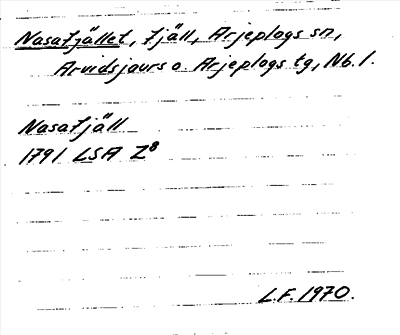 Nasafjället, fjäll, Arjeplogs sn,
Arvidsjaurs o. Arjeplogs tg, Nb. l.
Nasafjäll
1791 LSA Z8
L.F. 1970.